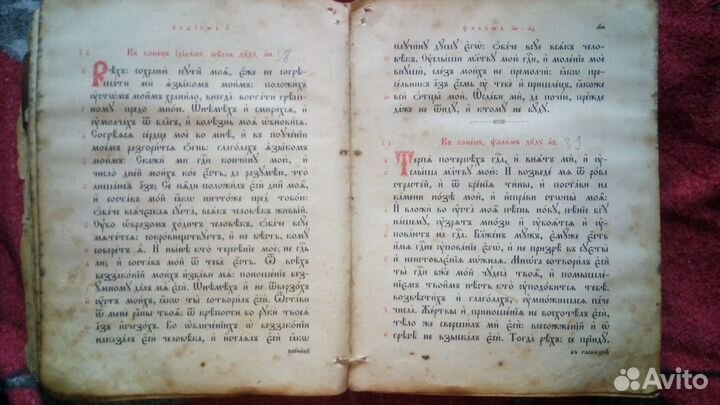 Въ конецъ їдїѳꙋмꙋ, пѣснь дв҃дꙋ л҃и. 38
Рѣхъ: сохраню̀ пꙋтѝ моѧ̑, є҆́же не согрѣ-
ша́ти мѝ ѧ҆зы́комъ мои́мъ: положи́хъ
ᲂу҆стѡ́мъ мои̑мъ храни́ло, внегда̀ воста́ти грѣ́ш-
номꙋ предо мно́ю. Ѡ҆нѣмѣ́хъ и҆ смири́хсѧ, и҆
ᲂу҆молча́хъ ѿ бла̑гъ, и҆ болѣ́знь моѧ̀ ѡ҆бнови́сѧ.
Согрѣ́ѧсѧ се́рдце моѐ во мнѣ̀, и҆ въ поꙋче́нїи
мое́мъ разгори́тсѧ ѻ҆́гнь: глаго́лахъ ѧ҆зы́комъ
мои́мъ: Скажи́ ми гдⷭ҇и кончи́нꙋ мою̀, и҆
число̀ дні́й мои́хъ ко́е є҆́сть, да разꙋмѣ́ю, что̀
лиша́юсѧ а҆́зъ; Сѐ пѧ̑ди положи́лъ є҆сѝ дни̑ моѧ̑,
и҆ соста́въ мо́й ꙗ҆́кѡ ничто́же пред̾ тобо́ю:
ᲂу҆ба́че всѧ́ческаѧ сꙋета̀, всѧ́къ человѣ́къ живы́й.
Оу҆́бѡ ѻ҆́бразомъ хо́дитъ человѣ́къ, ᲂу҆ба́че всꙋ́е
мѧте́тсѧ: сокро́вищствꙋетъ, и҆ не вѣ́сть, комꙋ̀
собере́тъ ѧ҆̀. И҆ ны́нѣ кто̀ терпѣ́нїе моѐ; не гдⷭ҇ь
ли; и҆ соста́въ мо́й ѿ тебє̀ є҆́сть. Ѿ всѣ́хъ
беззако́нїй мои́хъ и҆зба́ви мѧ̀: поноше́нїе без-
ꙋ́мномꙋ да́лъ мѧ̀ є҆сѝ. Ѡ҆нѣмѣ́хъ и҆ не ѿверзо́хъ
ᲂу҆́стъ мои́хъ, ꙗ҆́кѡ ты̀ сотвори́лъ є҆сѝ. Ѿста́ви
ѿ менє̀ ра̑ны твоѧ̑: ѿ крѣ́пости бо рꙋкѝ твоеѧ̀
а҆́зъ и҆счезо́хъ. Во ѡ҆бличе́нїихъ ѡ҆ беззако́нїи
наказа́лъ є҆сѝ человѣ́ка, и҆ и҆ста́ѧлъ є҆сѝ ꙗ҆́кѡ
паꙋчи́нꙋ
паꙋчи́нꙋ дꙋ́шꙋ є҆гѡ̀: ᲂу҆ба́че всꙋ́е всѧ́къ чело-
вѣ́къ. Оу҆слы́ши моли́твꙋ мою̀ гдⷭ҇и, и҆ моле́нїе моѐ
внꙋшѝ, сле́зъ мои́хъ не премолчѝ: ꙗ҆́кѡ пре-
се́лникъ а҆́зъ є҆́смь ᲂу҆ тебє̀ и҆ пришле́цъ, ꙗ҆́коже
всѝ ѻ҆тцы̀ моѝ. Ѡ҆сла́би мѝ, да почі́ю, пре́жде
да́же не ѿидꙋ̀, и҆ ктомꙋ̀ не бꙋ́дꙋ.
Въ коне́цъ, ѱало́мъ дв҃дꙋ л҃ѳ. 39
Терпѧ̀ потерпѣ́хъ гдⷭ҇а, и҆ внѧ́тъ мѝ, и҆ ᲂу҆-
слы́ша моли́твꙋ мою̀. И҆ возведе́ мѧ ѿ ро́ва
страсте́й, и҆ ѿ бре́нїѧ ти́ны, и҆ поста́ви на
ка́мени но́зѣ моѝ, и҆ и҆спра́ви стѡпы̀ моѧ̑.
И҆ вложѝ во ᲂу҆ста̀ моѧ̑ пѣ́снь но́вꙋ, пѣ́нїе бг҃ꙋ
на́шемꙋ, ᲂу҆́зрѧтъ мно́зи и҆ ᲂу҆боѧ́тсѧ, и҆ ᲂу҆пова́ютъ
на гдⷭ҇а. Бл҃же́нъ мꙋ́жъ, є҆мꙋ́же є҆́сть
и҆́мѧ гдⷭ҇не ᲂу҆пова́нїе є҆гѡ̀, и҆ не призрѣ̀ въ сꙋєты̀
и҆ неистовлє́нїѧ лѡ́жнаѧ. Мнѡ́га сотвори́лъ
є҆сѝ ты̀ гдⷭ҇и бж҃е мо́й чꙋдеса̀ твоѧ̑, и҆ помышле́нї-
ємъ твои̑мъ нѣ́сть кто̀ ᲂу҆подо́битсѧ тебѣ̀.
возвѣсти́хъ и҆ глаго́лахъ, ᲂу҆мно́жишасѧ па́че
числа̀. Же́ртвы и҆ приноше́нїѧ не восхотѣ́лъ є҆сѝ,
тѣ́ло же сверши́лъ мѝ є҆сѝ: всесожже́нїй и҆ ѡ҆
грѣсѣ̀ не взыска́лъ є҆сѝ. Тогда̀ рѣ́хъ: сѐ прїидꙋ̀,
въ главизнѣ
Avito